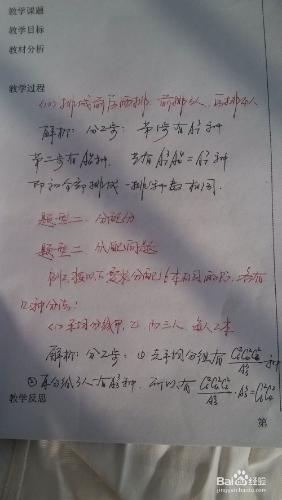 教学课题
教学目标
教材分析
教学过程
(10) 排成前后两排, 前排3人, 后排4人
解析: 分2步: 第1步有 种
第二步有 种 共有 种
即和全部排成一排 种数相同.
题型二. 分配
题型二. 分配问题
例2. 按以下要求分配6本不同的书, 各有
几种分法?
(1) 平均分给甲, 乙, 丙三人, 每人2本
解析: 分2步: ① 先平均分组有 C₆²C₄²C₂²/A₃³ 种
② 再分给3人有A₃³种, 所以有 C₆²C₄²C₂²/A₃³ · A₃³ =
教学反思
第
Bai du 经验
jingyan.baidu.com